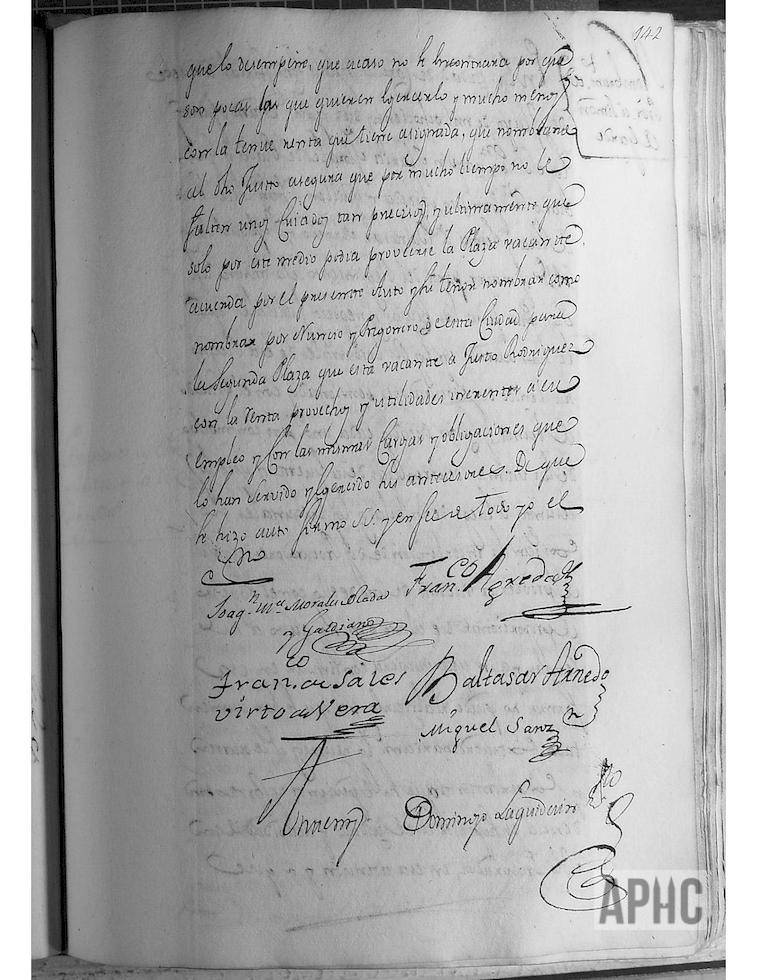 142
que lo desempeñe, que acaso no se encontrara por que
son pocas las que quieren egercerlo y mucho menos
con la tenue renta que tiene asignada, que nombrando
al dho Justo asegura que por mucho tiempo no le
falten unos Cuidados tan precisos, y ultimamente que
solo por este medio podia proveerse la Plaza vacante.
acuerda por el presente Auto y su tenor nombrar como
nombran por Nuncio y Pregonero de esta Ciudad para
la Segunda Plaza que está vacante a Justo Rodriguez
con la renta provechos y utilidades inherentes a su
empleo y con las mismas Cargas y obligaciones que
lo han servido y egercido sus antecesores. De que
se hizo auto firmo SS. y en fee de todo yo el
Sno
Joaqn. Ma. Morales Rada
y Galdiano
Franco. Agreda
Franco. de Sales
virto de Vera
Baltasar Añedo
Miguel Sanz
Antemi
Domingo Laguidain
APHC